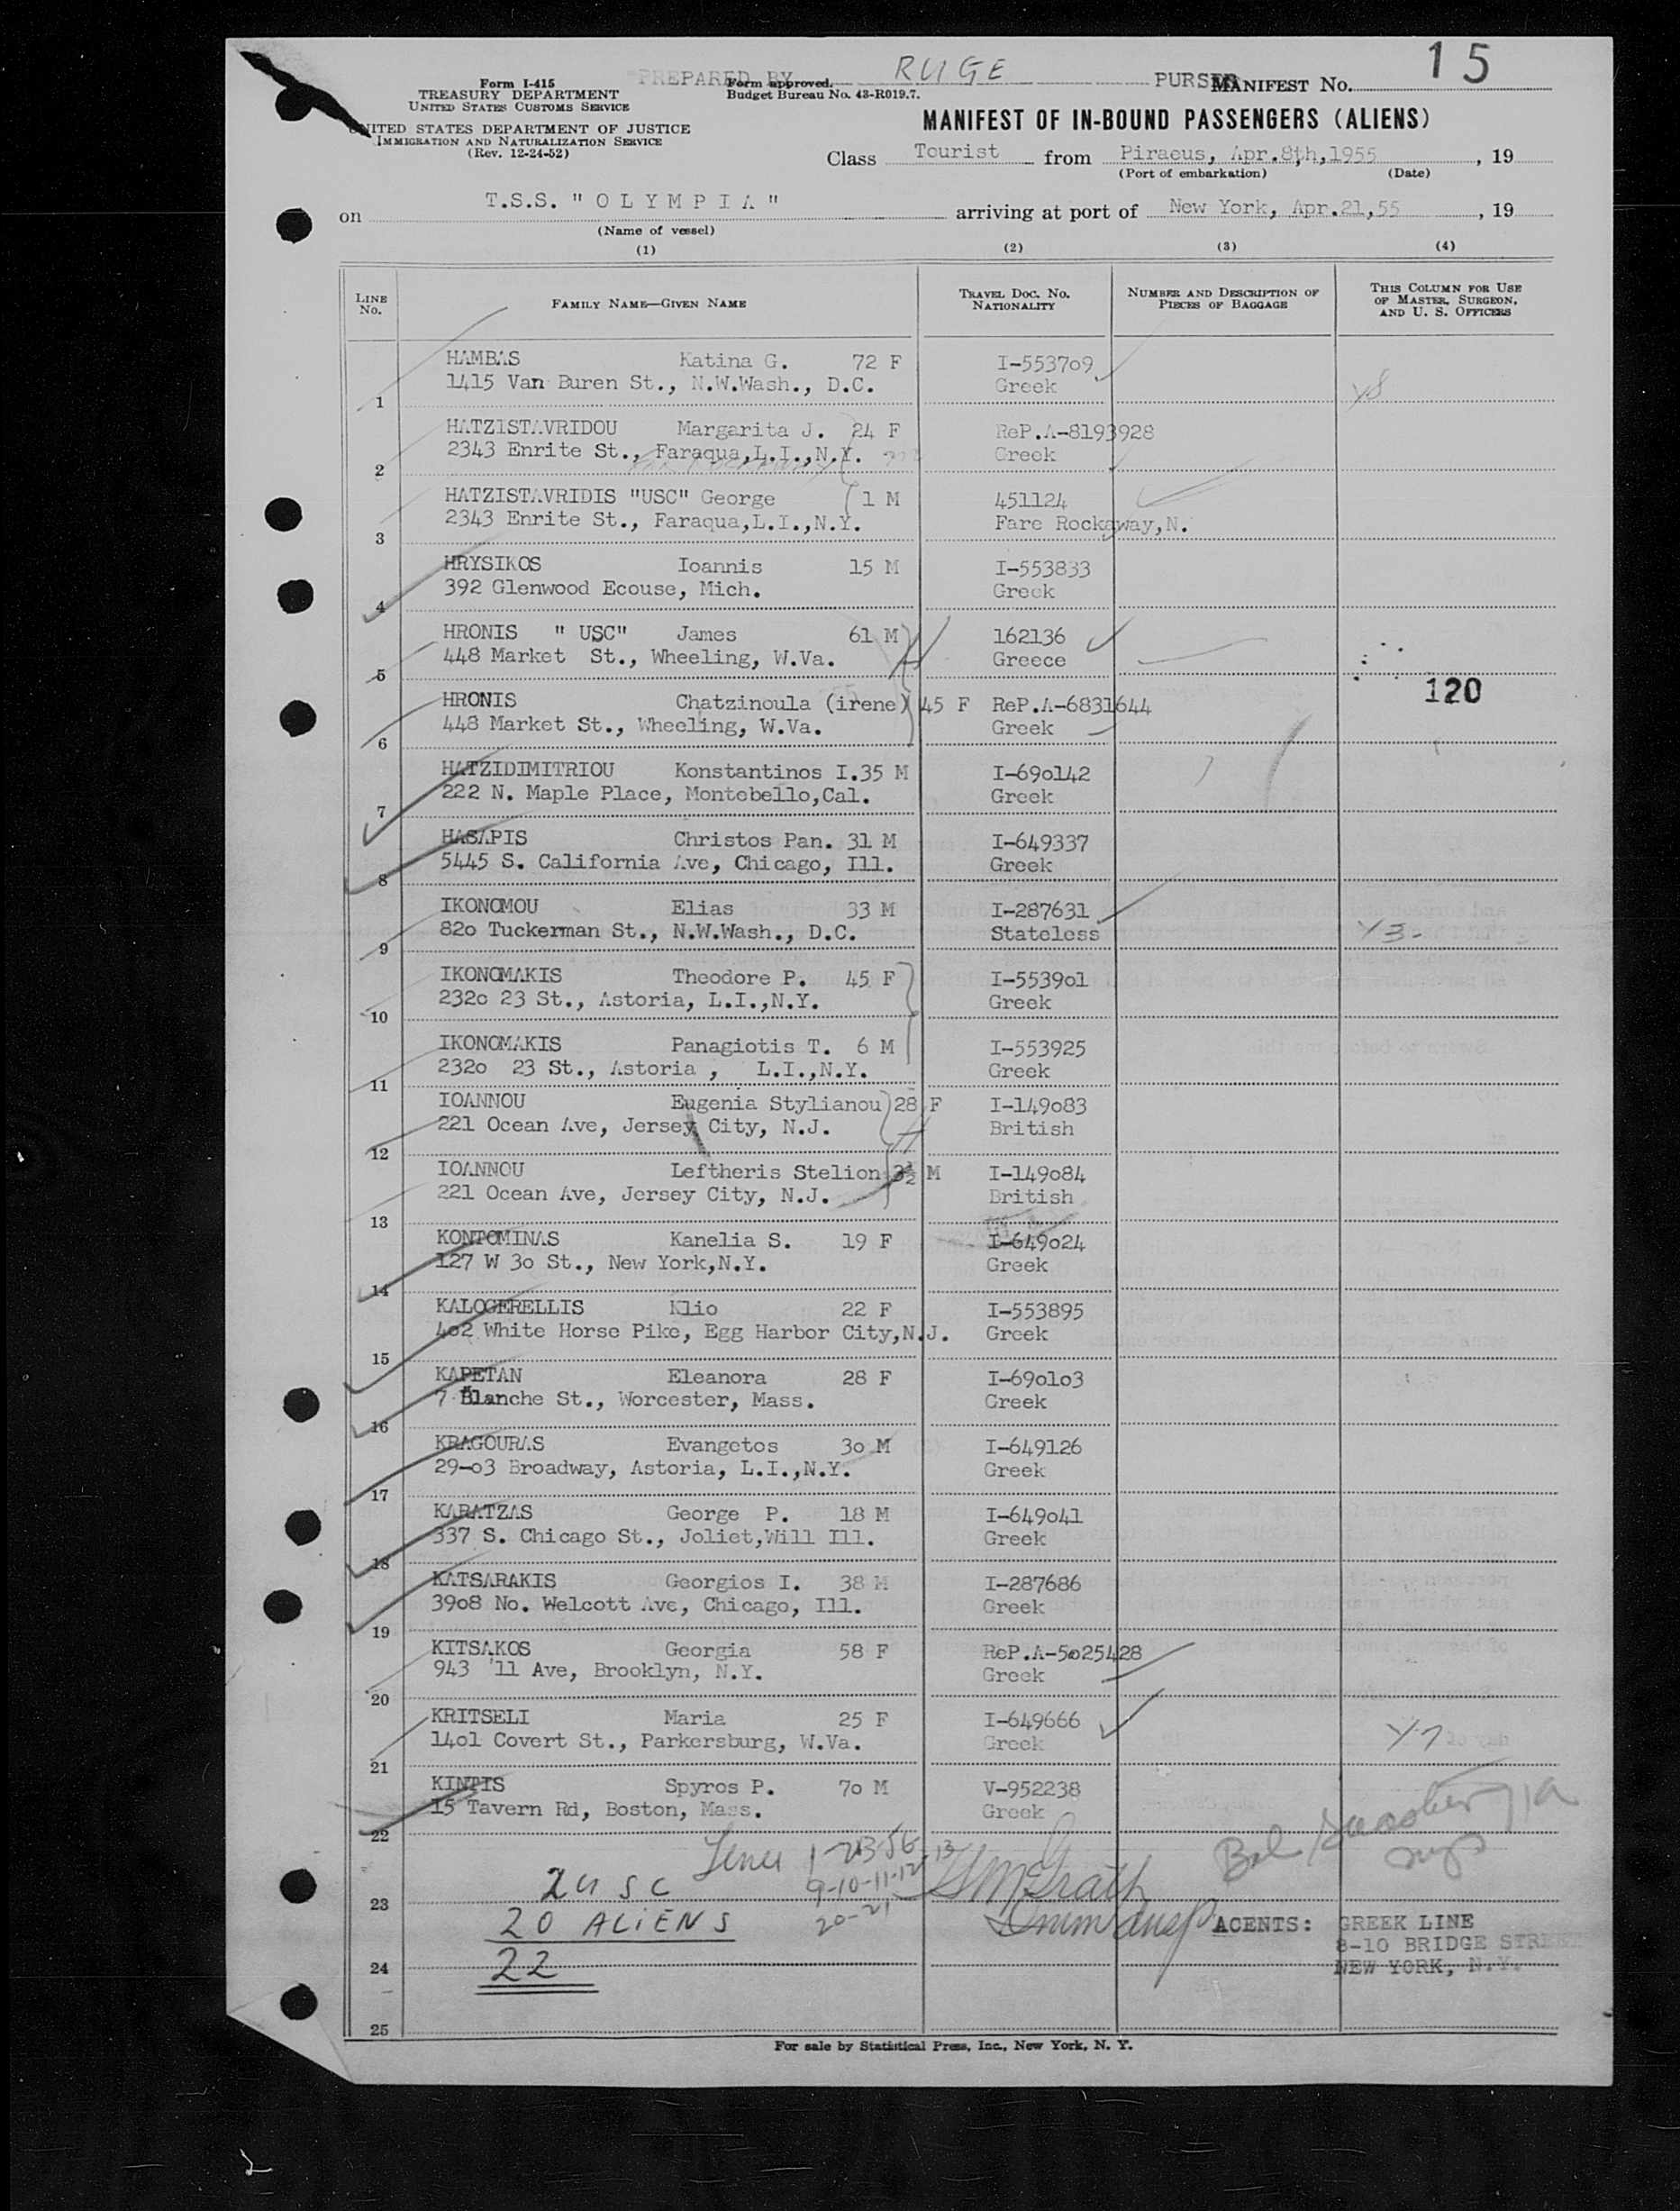 15
PREPARED BY RUGE PURSER MANIFEST No.
Form I-415
TREASURY DEPARTMENT
UNITED STATES CUSTOMS SERVICE
UNITED STATES DEPARTMENT OF JUSTICE
IMMIGRATION AND NATURALIZATION SERVICE
(Rev. 12-24-52)
Form approved.
Budget Bureau No. 43-R019.7.
MANIFEST OF IN-BOUND PASSENGERS (ALIENS)
Class Tourist from Piraeus, Apr.8th,1955, 19
(Port of embarkation) (Date)
on T.S.S. "OLYMPIA" arriving at port of New York, Apr.21,55, 19
(Name of vessel)
(1) (2) (3) (4)
LINE No. FAMILY NAME—GIVEN NAME TRAVEL DOC. NO. NATIONALITY NUMBER AND DESCRIPTION OF PIECES OF BAGGAGE THIS COLUMN FOR USE OF MASTER, SURGEON, AND U. S. OFFICERS
HAMBAS Katina G. 72 F I-553709
1415 Van Buren St., N.W.Wash., D.C. Greek
1
HATZISTAVRIDOU Margarita J. 24 F ReP.A-8193928
2343 Enrite St., Faraqua,L.I.,N.Y. Greek
2
HATZISTAVRIDIS "USC" George 1 M 451124
2343 Enrite St., Faraqua,L.I.,N.Y. Fare Rockaway,N.
3
HRYSIKOS Ioannis 15 M I-553833
392 Glenwood Ecouse, Mich. Greek
4
HRONIS " USC" James 61 M 162136
448 Market St., Wheeling, W.Va. Greece
5
120
HRONIS Chatzinoula (irene) 45 F ReP.A-6831644
448 Market St., Wheeling, W.Va. Greek
6
HATZIDIMITRIOU Konstantinos I.35 M I-690142
222 N. Maple Place, Montebello,Cal. Greek
7
HASAPIS Christos Pan. 31 M I-649337
5445 S. California Ave, Chicago, Ill. Greek
8
IKONOMOU Elias 33 M I-287631
820 Tuckerman St., N.W.Wash., D.C. Stateless
9
IKONOMAKIS Theodore P. 45 F I-553901
2320 23 St., Astoria, L.I.,N.Y. Greek
10
IKONOMAKIS Panagiotis T. 6 M I-553925
2320 23 St., Astoria , L.I.,N.Y. Greek
11
IOANNOU Eugenia Stylianou 28 F I-149083
221 Ocean Ave, Jersey City, N.J. British
12
IOANNOU Leftheris Stelion 3½ M I-149084
221 Ocean Ave, Jersey City, N.J. British
13
KONTOMINAS Kanelia S. 19 F I-649024
127 W 30 St., New York,N.Y. Greek
14
KALOGERELLIS Klio 22 F I-553895
402 White Horse Pike, Egg Harbor City,N.J. Greek
15
KAPETAN Eleanora 28 F I-690103
7 Blanche St., Worcester, Mass. Greek
16
KRAGOURAS Evangetos 30 M I-649126
29-03 Broadway, Astoria, L.I.,N.Y. Greek
17
KARATZAS George P. 18 M I-649041
337 S. Chicago St., Joliet,Will Ill. Greek
18
KATSARAKIS Georgios I. 38 M I-287686
3908 No. Welcott Ave, Chicago, Ill. Greek
19
KITSAKOS Georgia 58 F ReP.A-5025428
943 '11 Ave, Brooklyn, N.Y. Greek
20
KRITSELI Maria 25 F I-649666
1401 Covert St., Parkersburg, W.Va. Greek
21
KINTIS Spyros P. 70 M V-952238
15 Tavern Rd, Boston, Mass. Greek
22
2 USC
9-10-11-12
23
20 ALIENS
20-21
AGENTS: GREEK LINE
8-10 BRIDGE STREET
NEW YORK, N.Y.
24
22
25
For sale by Statistical Press, Inc., New York, N. Y.